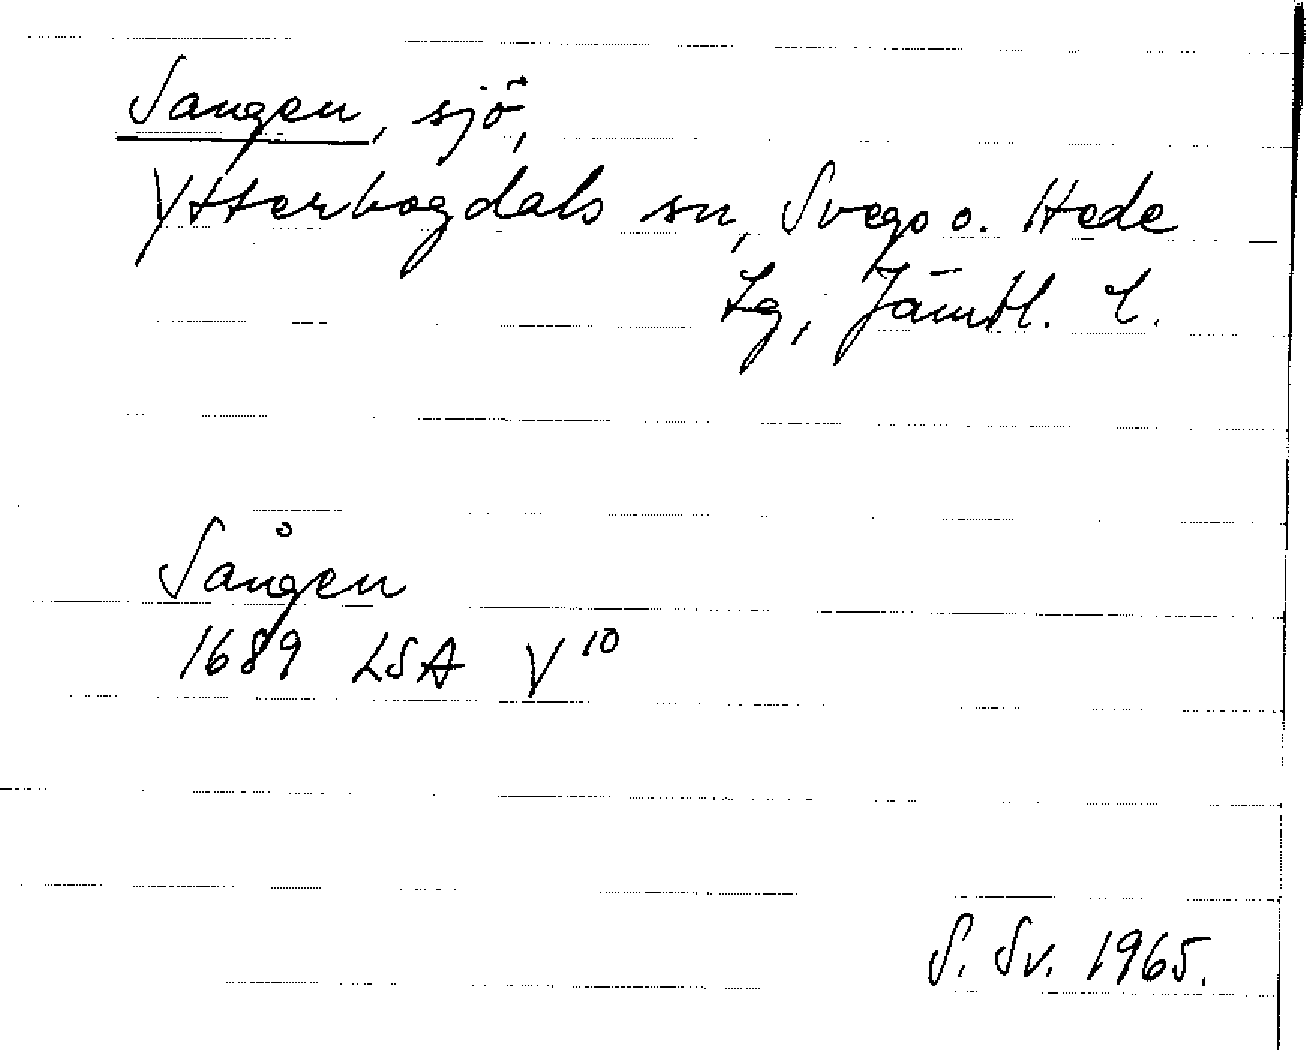 Sangen, sjö,
Ytterhogdals sn, Svegs o. Hede
tg, Jämtl. l.
Sången
1689 LSA Y10
S. Sv. 1965.